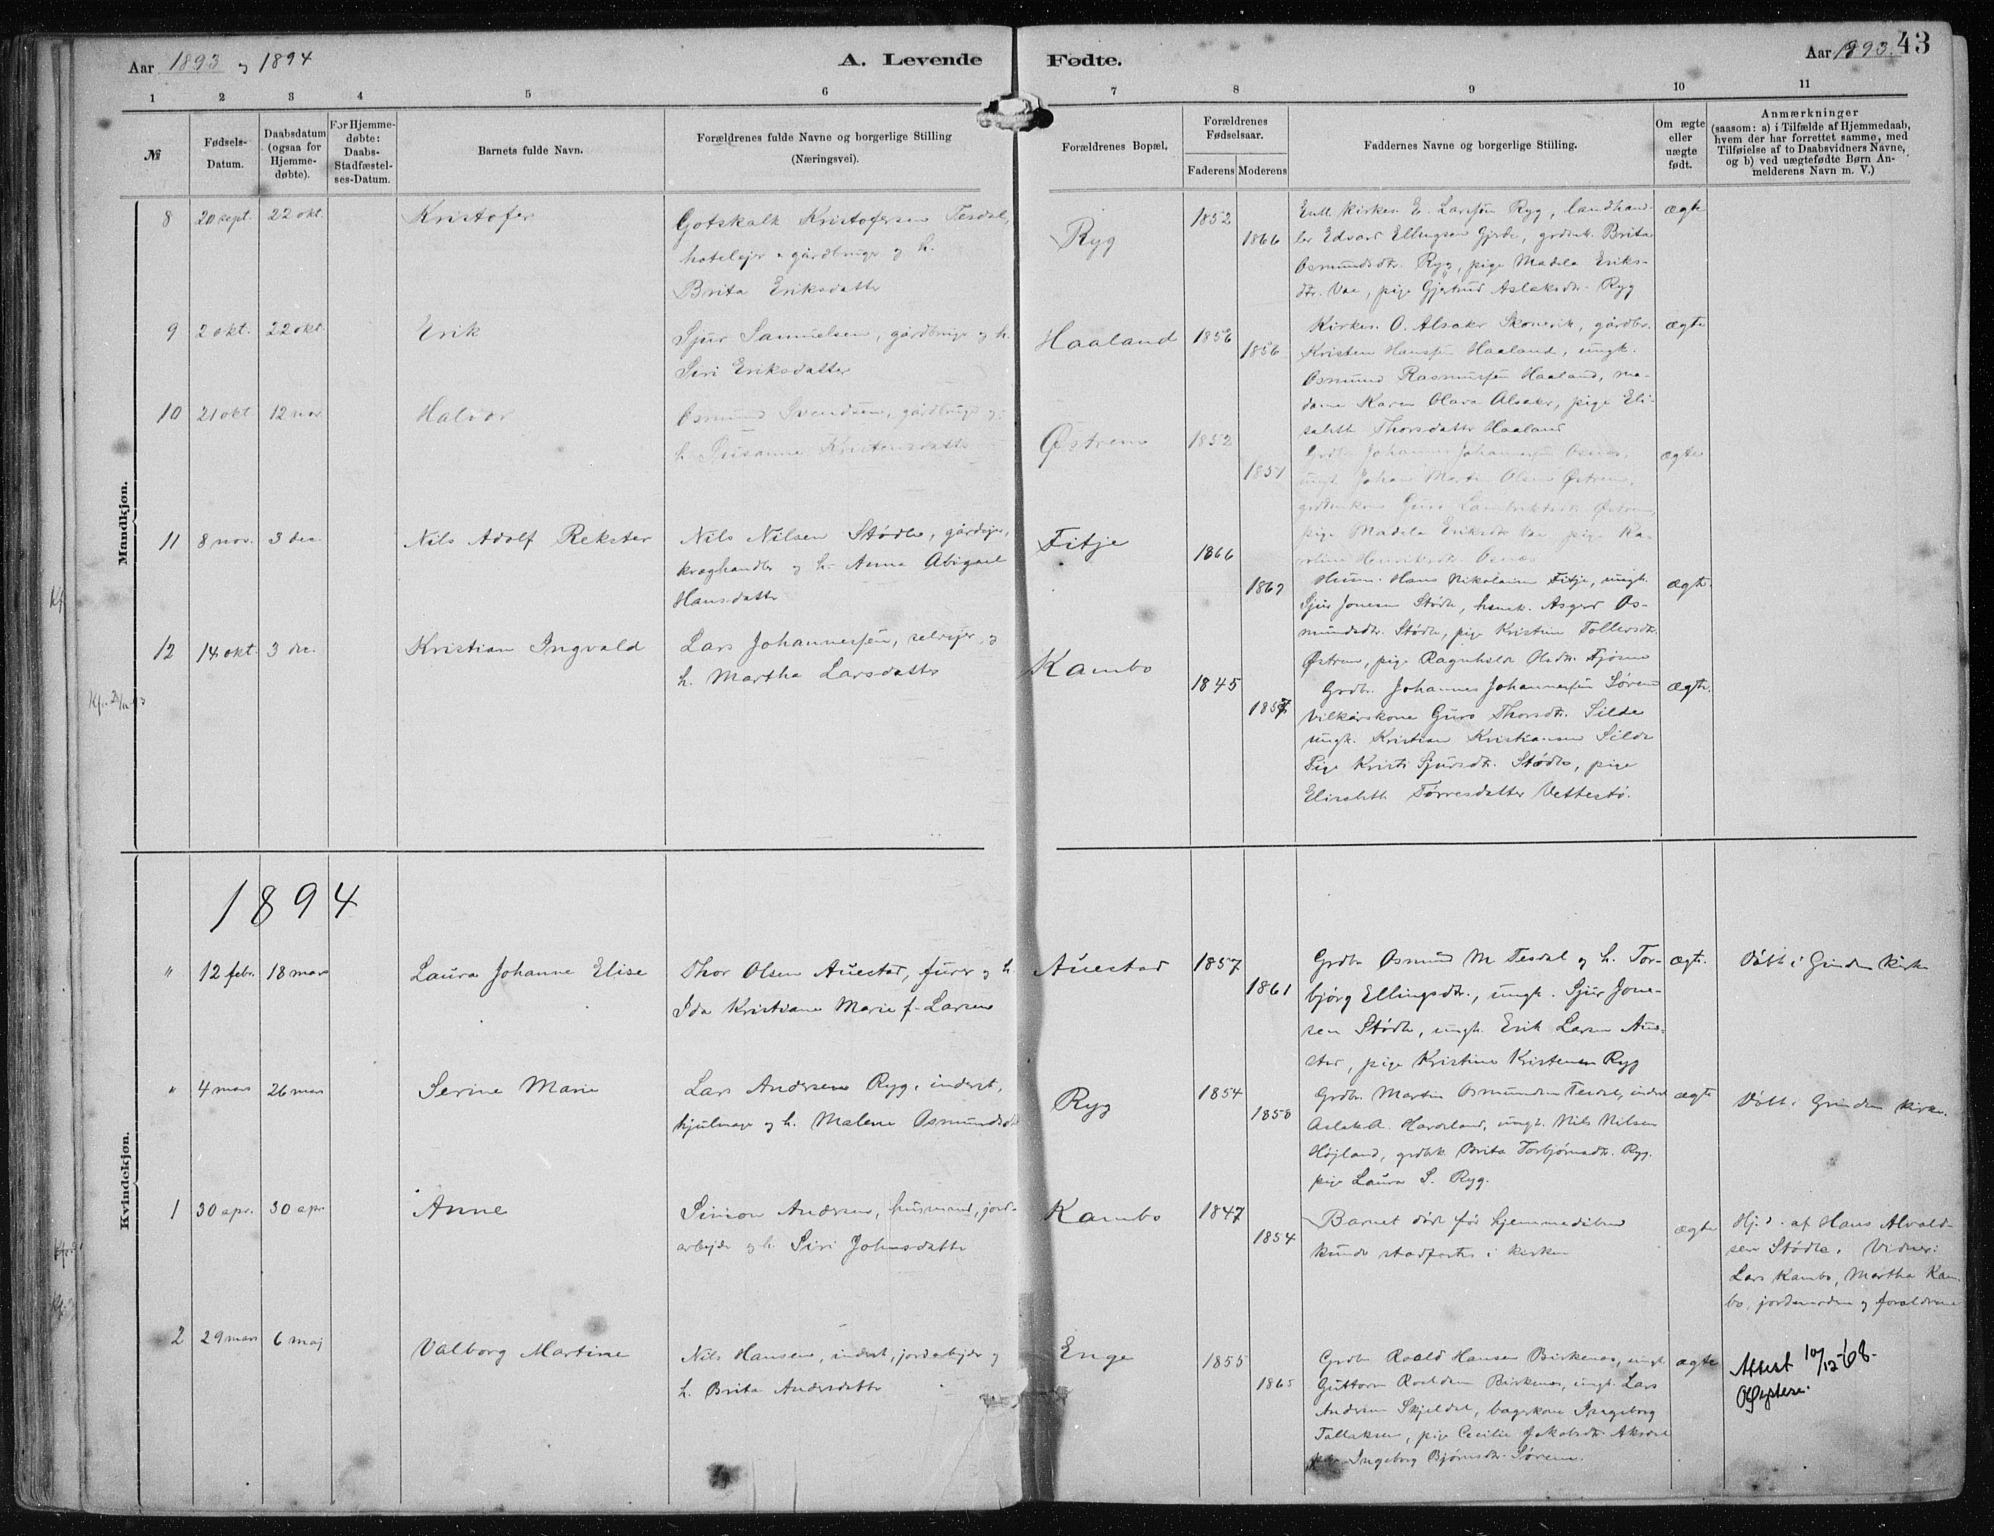 Aar 1893 og 1894
A. Levende Fødte.
Aar 1893. 43
1 2 3 4 5 6 7 8 9 10 11
№
Fødsels-Datum.
Daabsdatum (ogsaa for Hjemme-døbte).
For Hjemme-døbte: Daabs-Stadfæstel-ses-Datum.
Barnets fulde Navn.
Forældrenes fulde Navne og borgerlige Stilling (Næringsvei).
Forældrenes Bopæl.
Forældrenes Fødselsaar.
Faderens Moderens
Faddernes Navne og borgerlige Stilling.
Om ægte eller uægte født.
Anmærkninger (saasom: a) i Tilfælde af Hjemmedaab, hvem der har forrettet samme, med Tilføielse af to Daabsvidners Navne, og b) ved uægtefødte Børn Anmelderens Navn m. V.)
Mandkjøn.
8 20 sept. 22 okt. Kristofer
Gotskalk Kristofersen Tesdal,
hotelejer & gårdbruger og h.
Brita Eriksdatter
Ryg 1852 1866
Enkem. Kirkes. E. Larssøn Ryg, landhand-
ler Edvard Ellingsen Gjerde, grdmk. Brita
Osmundsdtr. Ryg, pige Madela Eriks-
dtr. Vae, pige Gjertrud Aslaksdtr. Ryg
ægte
9 2 okt. 22 okt. Erik
Sjur Samuelsen, gårdbruger og h.
Siri Eriksdatter
Haaland 1856 1856
Kirkes. O. Alsaker Skonevik, gårdbr.
Kristen Hanssøn Haaland, ungk.
Osmund Rasmussøn Haaland, ma-
dame Karen Olava Alsaker, pige Eli-
sabeth Thorsdatter Haaland
ægte
10 21 okt. 12 nov. Halvor
Osmund Svendsen, gårdbruger og
h. Kristensdatter
Østrem 1852 1851
Grdbr. Johannes Johannessøn Osnes,
ungk. Johan Martin Olsen Østrem,
grdmkone Guro Lambriktsdtr. Østrem,
pige Madela Eriksdtr. Vae, pige Ka-
roline Henriksdtr. Osnes
ægte
11 8 nov. 3 des. Nils Adolf Rekster
Nils Nilsen Stødle, gårdejer,
kræghandler og h. Anna Abigael
Hansdatter
Fitje 1866 1867
Husm. Hans Nikolaisen Fitje, ungk.
Sjur Jonesen Stødle, husmk. Asgerd Os-
mundsdtr. Stødle, pige Kristine Tollersdtr.
Østrem, pige Ragnhild Olsdtr. Fjøsne
ægte.
12 14 okt. 3 des. Kristian Ingvald
Lars Johannessøn, selvejer, og
h. Martha Larsdatter
Kambo 1845 1857
Grdbr. Johannes Johannessøn Sørem
Vilkårskone Guro Thorsdtr. Silde
ungk. Kristian Kristiansen Silde
Pige Kristi Sjursdtr. Stødle, pige
Elisabeth Tørresdatter Vettestø.
ægte.
1894
Kvindekjøn.
" 12 febr. 18 mars Laura Johanne Elise
Thor Olsen Auestad, furer og h.
Ida Kristiane Marie f. Larsen
Auestad 1857 1861
Grdbr. Osmund M Tesdal og h. Tor-
bjørg Ellingsdtr., ungk. Sjur Jone-
sen Stødle, ungk. Erik Larsen Aue-
stad, pige Kristine Kristensen Ryg
ægte. Døbt i Grinden Kirke
" 4 mars 26 mars Serine Marie
Lars Andersen Ryg, inderst,
hjulmager og h. Malene Osmundsdtr.
Ryg 1854 1858
Grdbr. Martin Osmundsen Tesdal, inderst
Aslak A. Hardeland, ungk. Nils Nilsen
Højland, grdbk. Brita Torbjørnsdtr. Ryg.
pige Laura S. Ryg.
ægte Døbt i Grinden Kirke.
1 30 apr. 30 apr Anne
Simon Andersen, husmand, jord-
arbejder og h. Siri Johnsdatter
Kambo 1847 1854
Barnet døde før hjemmedåben
kunde stadfæstes i kirken
ægte
Hj.d. af Hans Alvald-
sen Stødle. Vidner:
Lars Kambo, Martha Kam-
bo, jordemoderen og forældrene
2 29 mars 6 maj Valborg Martine
Nils Hansen, inderst, jordarbejder og
h. Brita Andersdatter
Enge 1855 1865
Grdbr. Roald Hansen Birkenes, ungk.
Guttorm Roaldsen Birkenes, ungk. Lars
Andersen Skjeldal, bagerkone Ingeborg
Tollaksen, pige Cecilie Jakobsdtr. Aksdal
pige Ingeborg Bjørnsdtr. Sørem.
ægte
Attest 10/12-68-